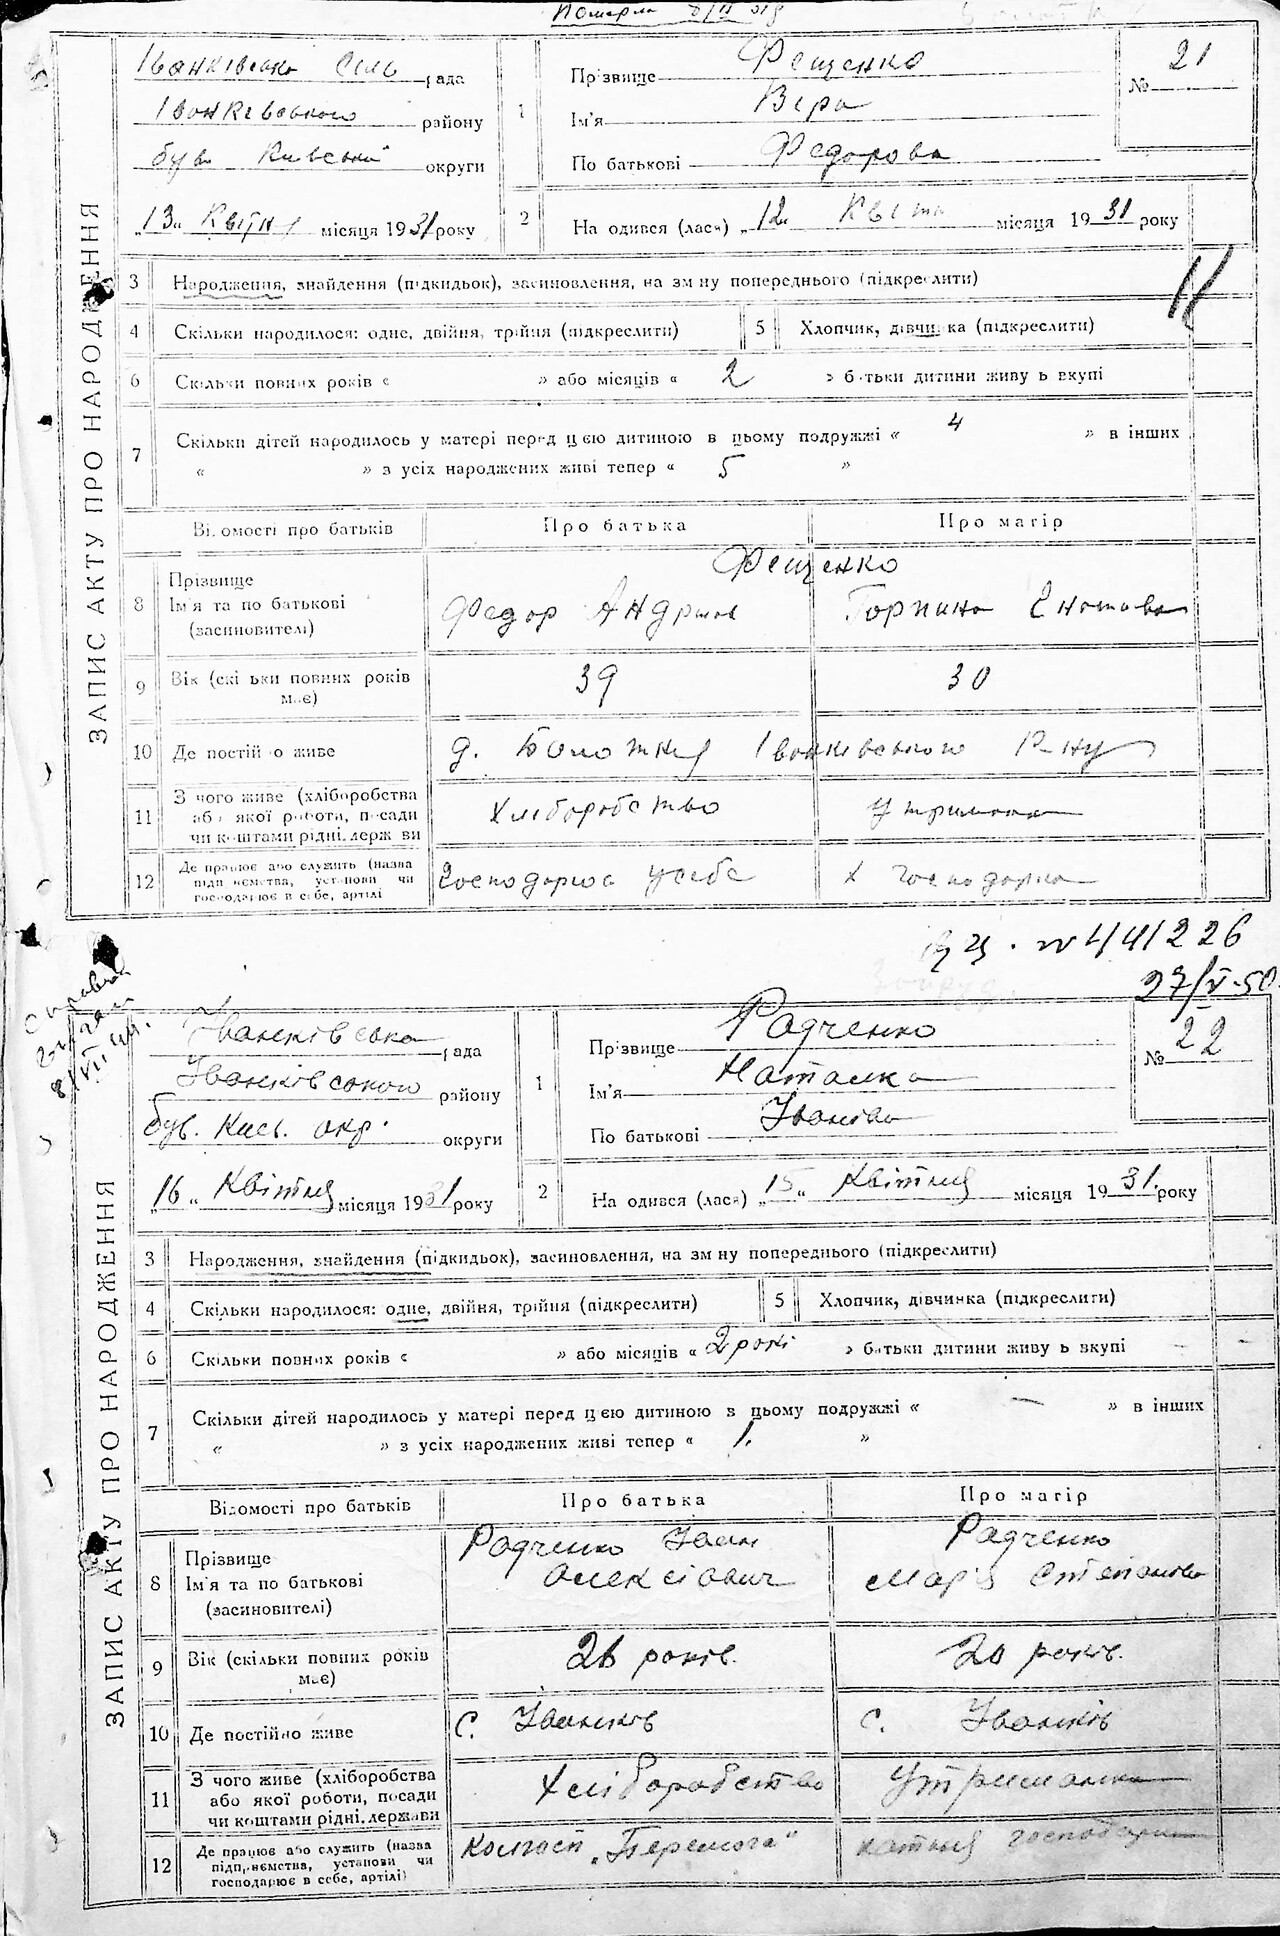 Померла
Іванківська Сіль рада
Іванківського району
був Київської округи
„13„ Квітня місяця 1931 року
1
Прізвище Фещенко
Ім'я Віра
По батькові Федорова
№ 21
2
На одився (лася) „12„ Квітня місяця 1931 року
ЗАПИС АКТУ ПРО НАРОДЖЕННЯ
3 Народження, знайдення (підкидьок), засиновлення, на зм ну попереднього (підкреслити)
4 Скільки народилося: одне, двійня, трійня (підкреслити) 5 Хлопчик, дівчинка (підкреслити)
6 Скільки повних років « » або місяців « 2 » батьки дитини живу ь вкупі
7 Скільки дітей народилось у матері перед цією дитиною в цьому подружжі « 4 » в інших
« » з усіх народжених живі тепер « 5 »
Ві омості про батьків Про батька Про матір
8 Прізвище Фещенко
Ім'я та по батькові Федор Горпина
(засиновителі)
9 Вік (скі ьки повних років має) 39 30
10 Де постій о живе д. Болотня Іванківського Р-ну
11 З чого живе (хліборобства
або якої роботи, посади Хліборобство утриманка
чи коштами рідні, держ ви
12 Де працює або служить (назва
підп ємства, установи чи господарює у себе х господарка
господарює в себе, артілі
27/V-50
Іванківська рада
Іванківського району
був. Киів. окр. округи
„16„ Квітня місяця 1931 року
1
Прізвище Радченко
Ім'я Наталка
По батькові Іванівна
№ 22
2
На одився (лася) „15„ Квітня місяця 1931 року
ЗАПИС АКТУ ПРО НАРОДЖЕННЯ
3 Народження, знайдення (підкидьок), засиновлення, на зм ну попереднього (підкреслити)
4 Скільки народилося: одне, двійня, трійня (підкреслити) 5 Хлопчик, дівчинка (підкреслити)
6 Скільки повних років « » або місяців « 2 рокі » батьки дитини живу ь вкупі
7 Скільки дітей народилось у матері перед цією дитиною в цьому подружжі « — » в інших
« » з усіх народжених живі тепер « 1. »
Відомості про батьків Про батька Про матір
8 Прізвище Радченко Іван Радченко
Ім'я та по батькові Олексіович Марія Степанівна
(засиновителі)
9 Вік (скільки повних років має) 26 років. 20 років.
10 Де постійно живе с. Іванків с. Іванків
11 З чого живе (хліборобства
або якої роботи, посади Хліборобство Утриманка
чи коштами рідні, держави
12 Де працює або служить (назва
підприємства, установи чи Колгосп „Перемога“ хатня господарка
господарює в себе, артілі)